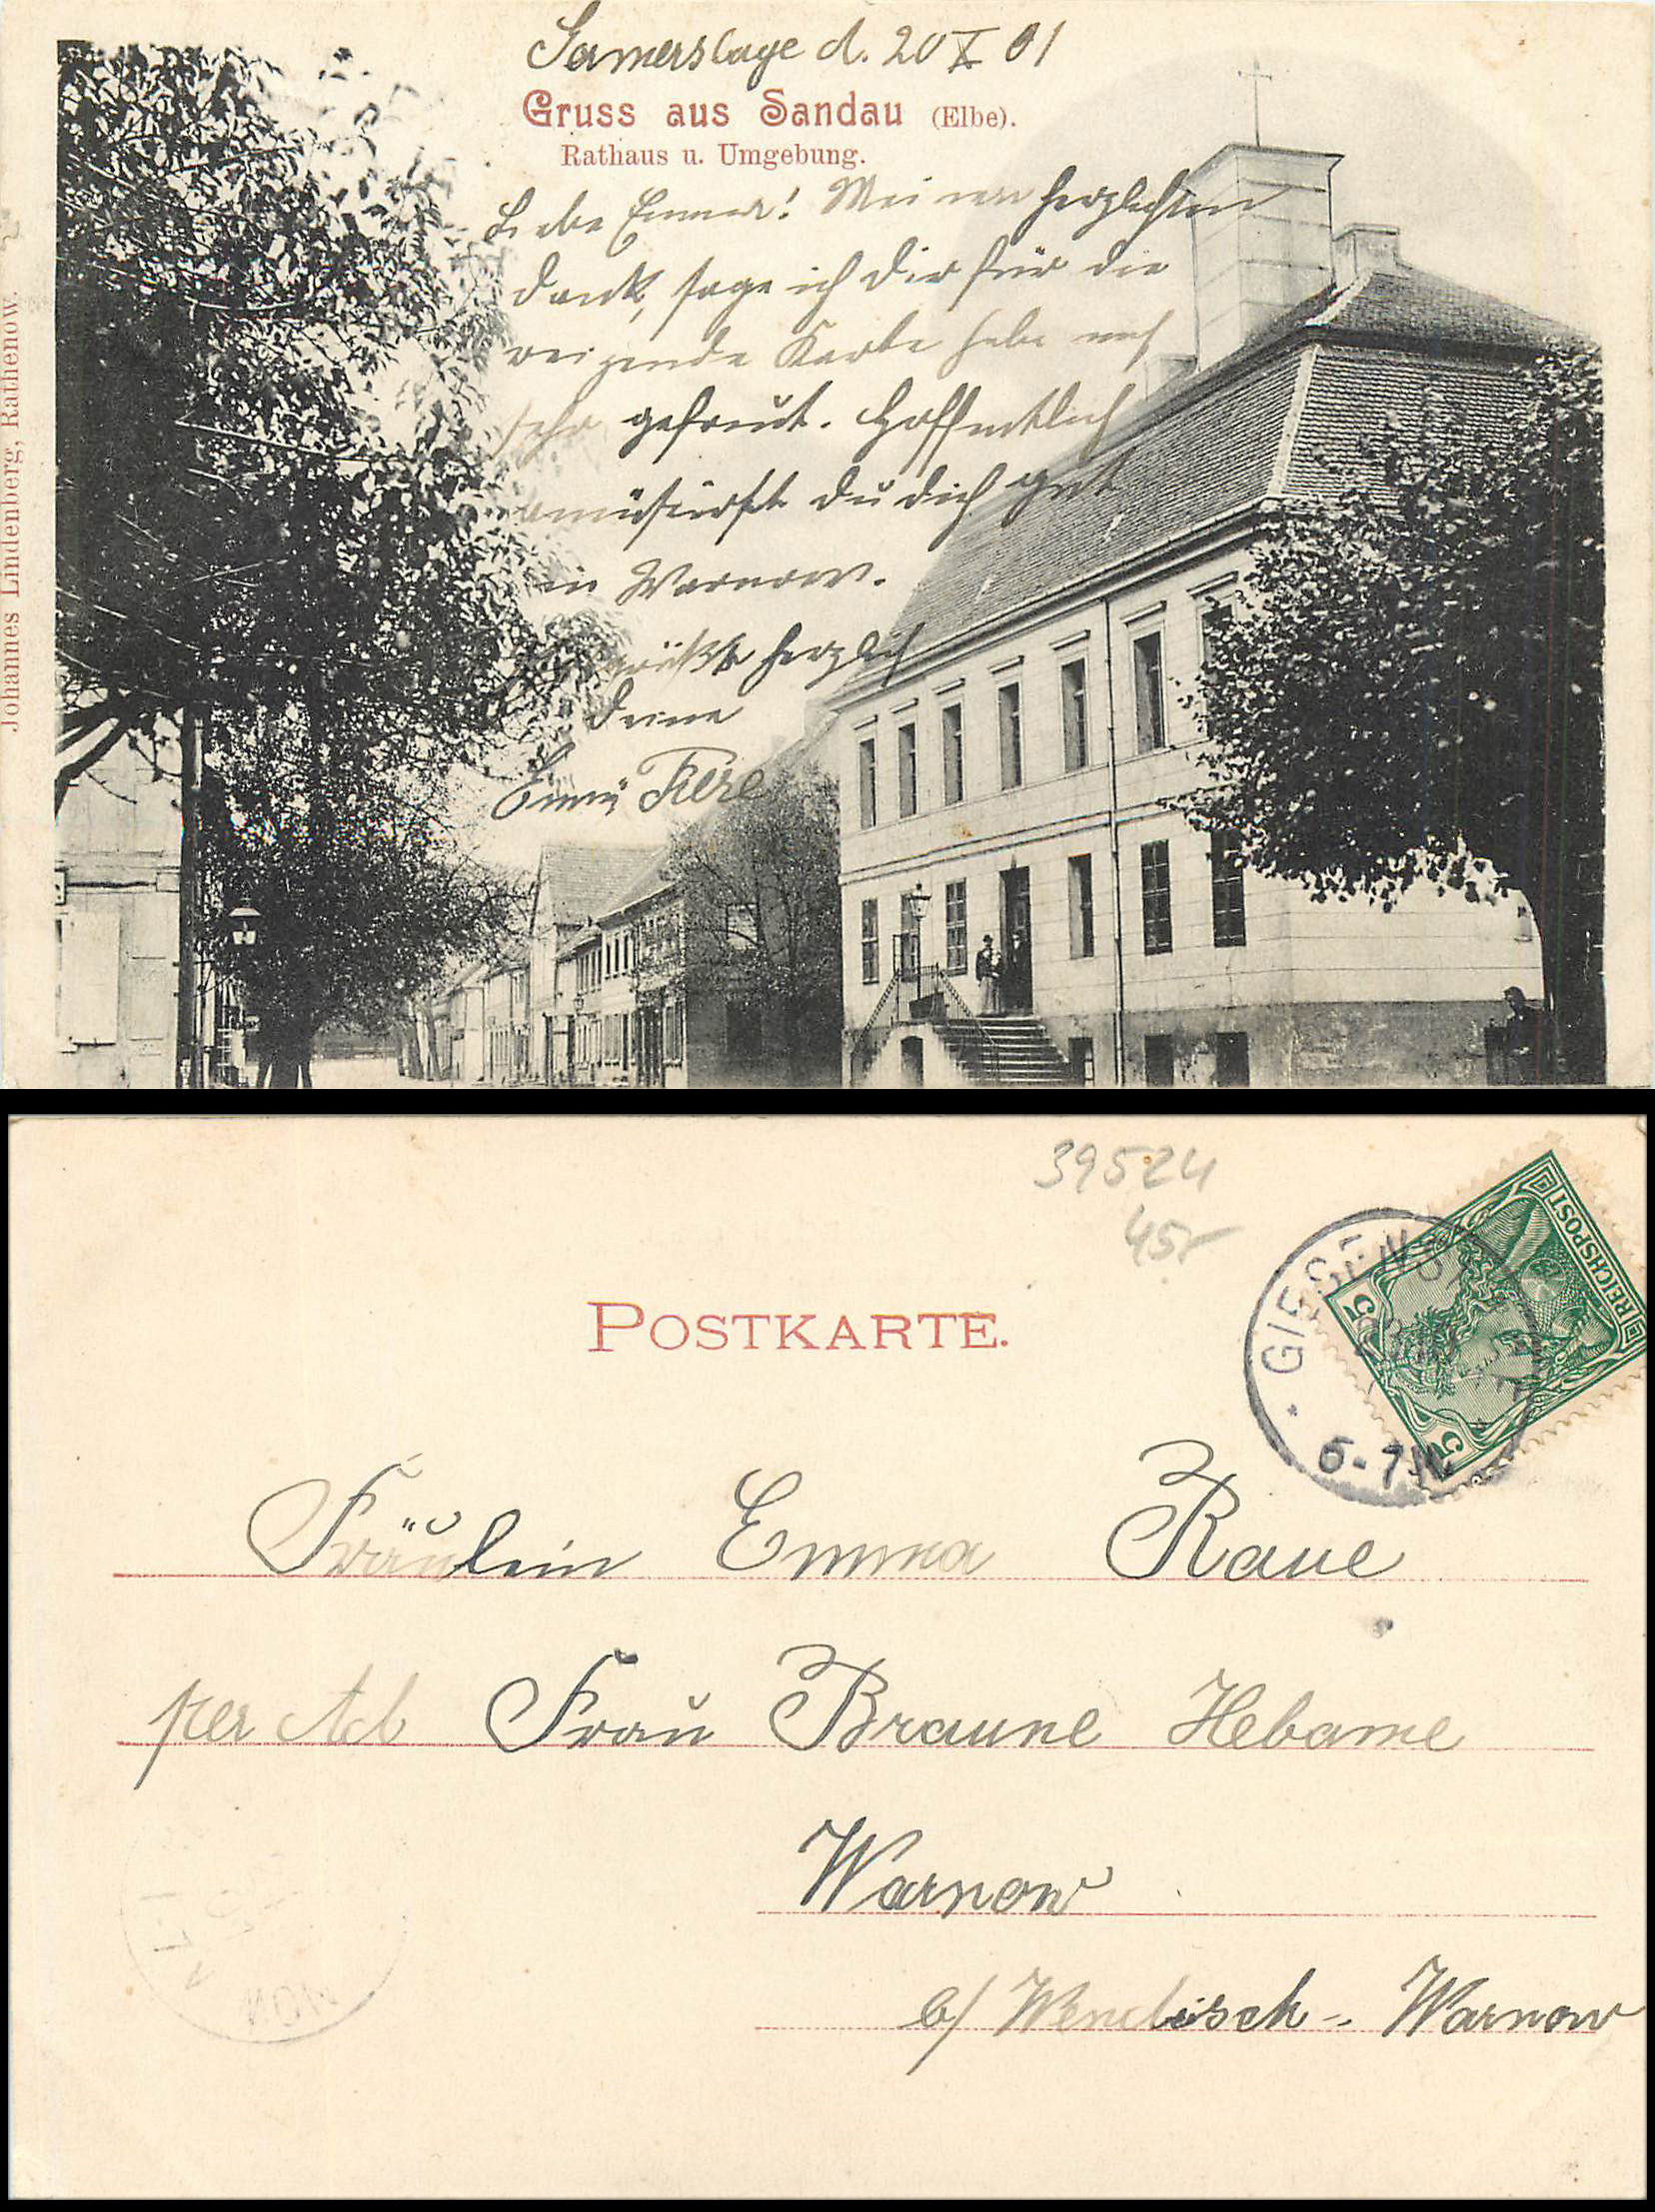 Jamerslage d. 20 X 01
Gruss aus Sandau (Elbe).
Rathaus u. Umgebung.
Liebe Emma! Meinen herzlichsten
Dank, sage ich Dir für die
reizende Karte habe mich
sehr gefreut. Hoffentlich
amüsirst du dich gut
in Warnow.
grüßt herzlich
Deine
Emmy
Johannes Lindenberg, Rathenow.
39524
45
POSTKARTE.
REICHSPOST
5
5
6-7N
Fräulein Emma Raue
per Ad Frau Braune Hebame
Warnow
b/ Wendisch-Warnow